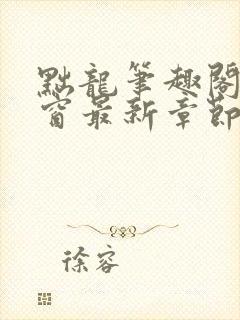 點龍筆趣閣
窗最新章節
徐容